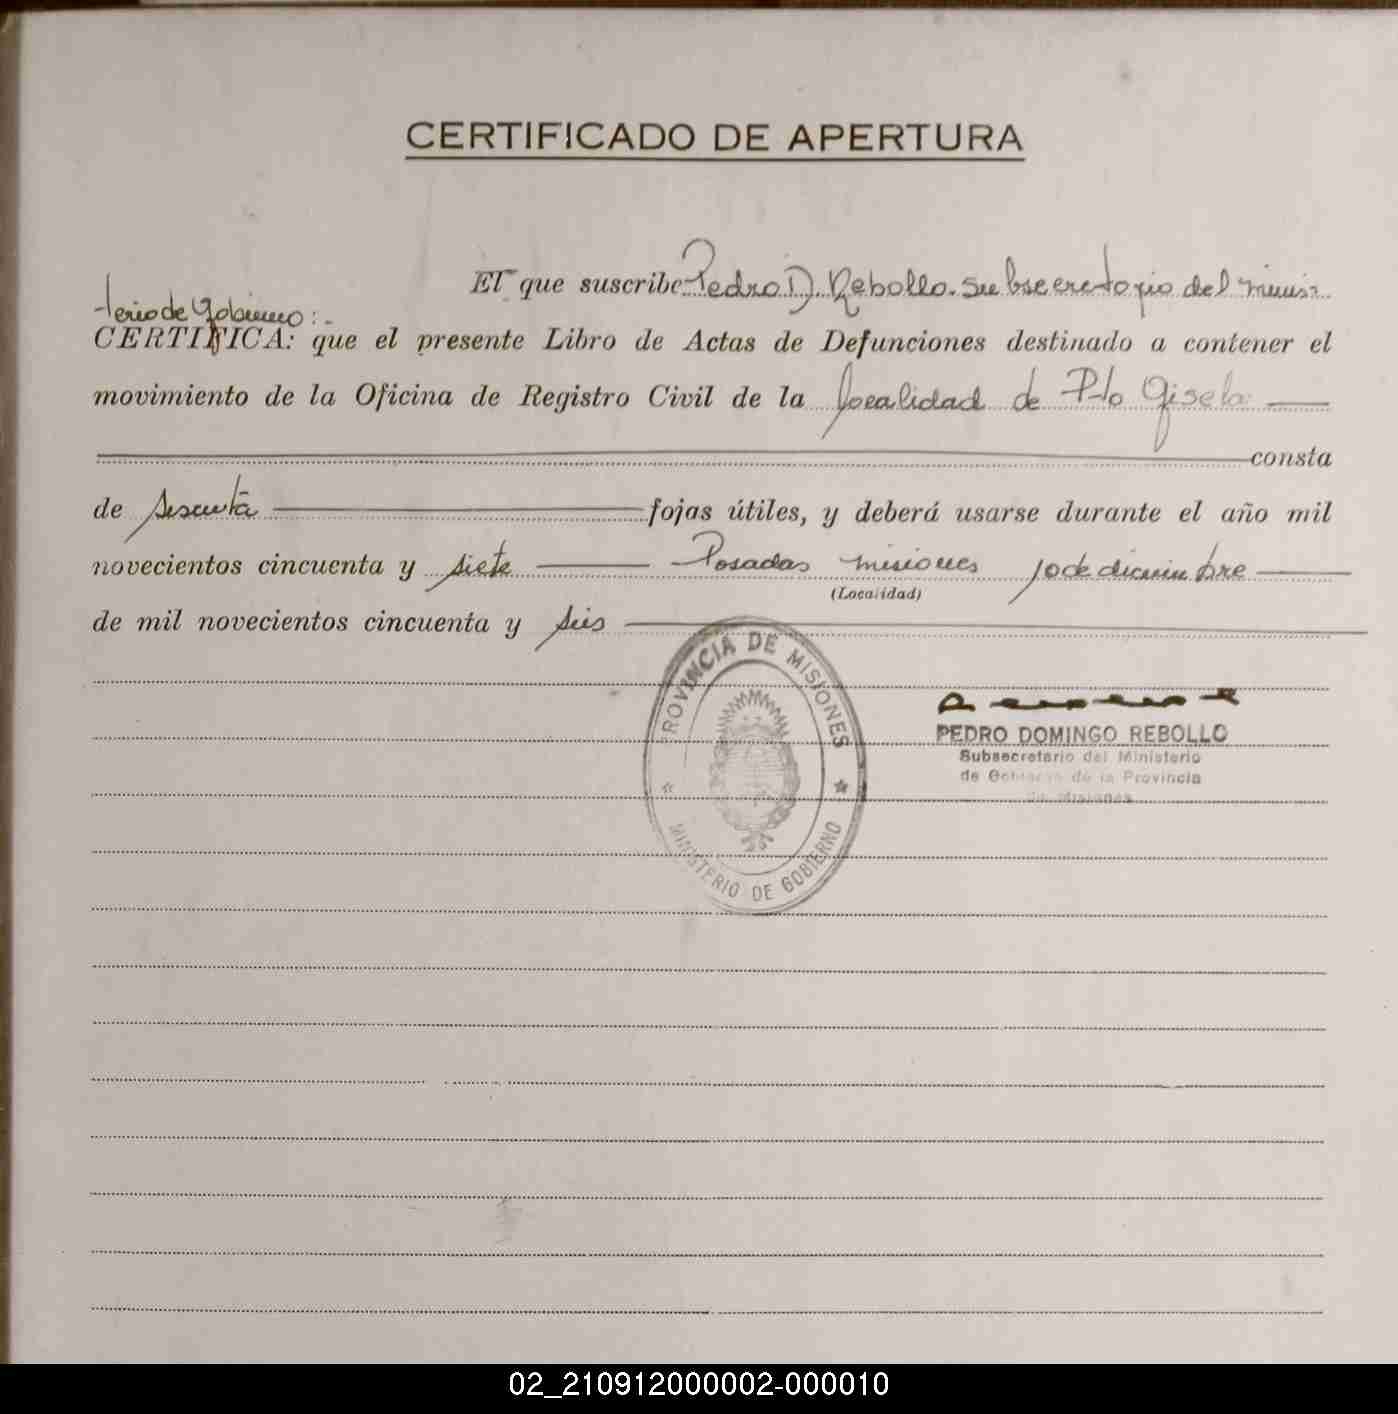 CERTIFICADO DE APERTURA
El que suscribe Pedro D. Rebollo. Subsecretario del minis-
terio de Gobierno:-
CERTIFICA: que el presente Libro de Actas de Defunciones destinado a contener el
movimiento de la Oficina de Registro Civil de la localidad de Pto Gisela
consta
de sesenta fojas útiles, y deberá usarse durante el año mil
novecientos cincuenta y siete Posadas misiones 10 de diciembre
(Localidad)
de mil novecientos cincuenta y seis
PROVINCIA DE MISIONES
MINISTERIO DE GOBIERNO
PEDRO DOMINGO REBOLLO
Subsecretario del Ministerio
de Gobierno de la Provincia
de Misiones
02_210912000002-000010